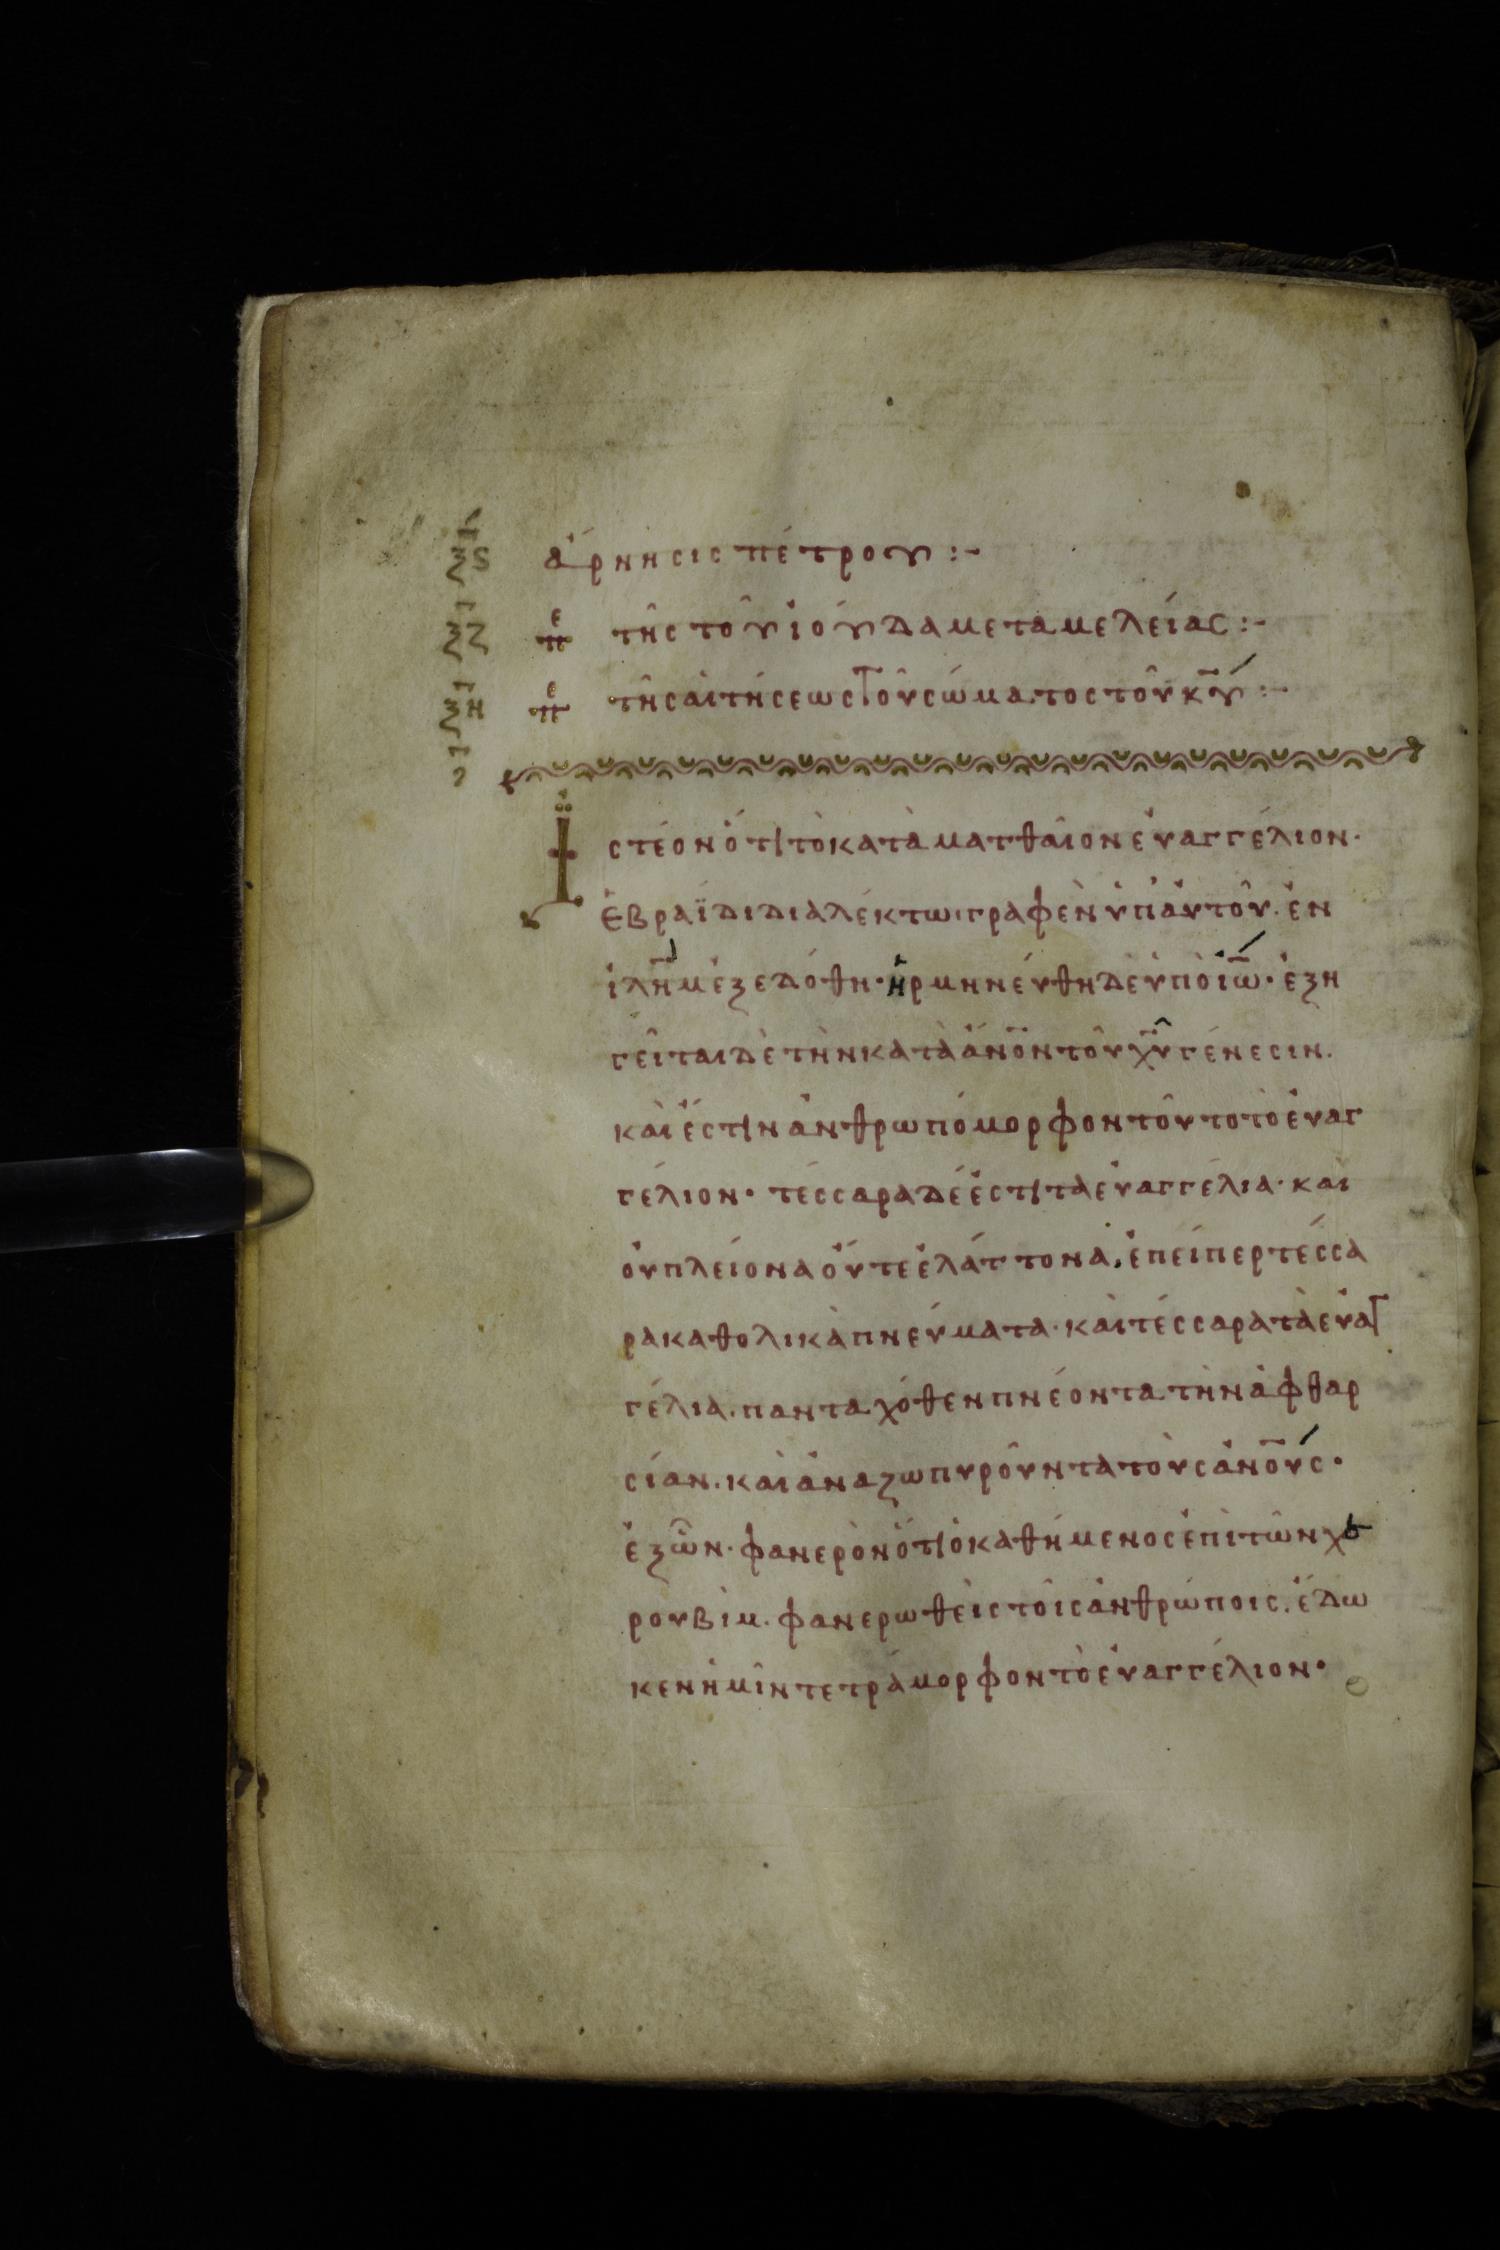 ξς ἄρνησις πέτρου :-
ξζ πε τῆς τοῦ ἰούδα μεταμελείας :-
ξη πε τῆς αἰτήσεως τοῦ σώματος τοῦ κ̅υ̅ :-
Ἰστέον ὅτι τὸ κατὰ ματθαῖον εὐαγγέλιον·
ἑβραΐδι διαλέκτω· γραφὲν ὑπ' αὐτοῦ· ἐν
ἰλ̅η̅μ ἐξεδόθη· ἡρμηνεύθη δὲ ὑπὸ ἰ̅ω̅· ἐξη
γεῖται δὲ τὴν κατὰ ἄν̅ο̅ν τοῦ χ̅υ̅ γένεσιν.
καὶ ἔστιν ἀνθρωπόμορφον τοῦτο τὸ εὐαγ
γέλιον· τέσσαρα δέ ἐστι τὰ εὐαγγέλια· καὶ
οὐ πλείονα οὔτε ἐλάττονα, ἐπείπερ τέσσα
ρα καθολικὰ πνεύματα· καὶ τέσσαρα τὰ εὐαγ
γέλια. πανταχόθεν πνέοντα τὴν ἀφθαρ
σίαν. καὶ ἀναζωπυροῦντα τοὺς ἀν̅ο̅υς·
ἐξ ὧν· φανερὸν ὅτι ὁ καθήμενος ἐπὶ τῶν χε
ρουβὶμ. φανερωθεὶς τοῖς ἀνθρώποις. ἔδω
κεν ἡμῖν τετράμορφον τὸ εὐαγγέλιον·